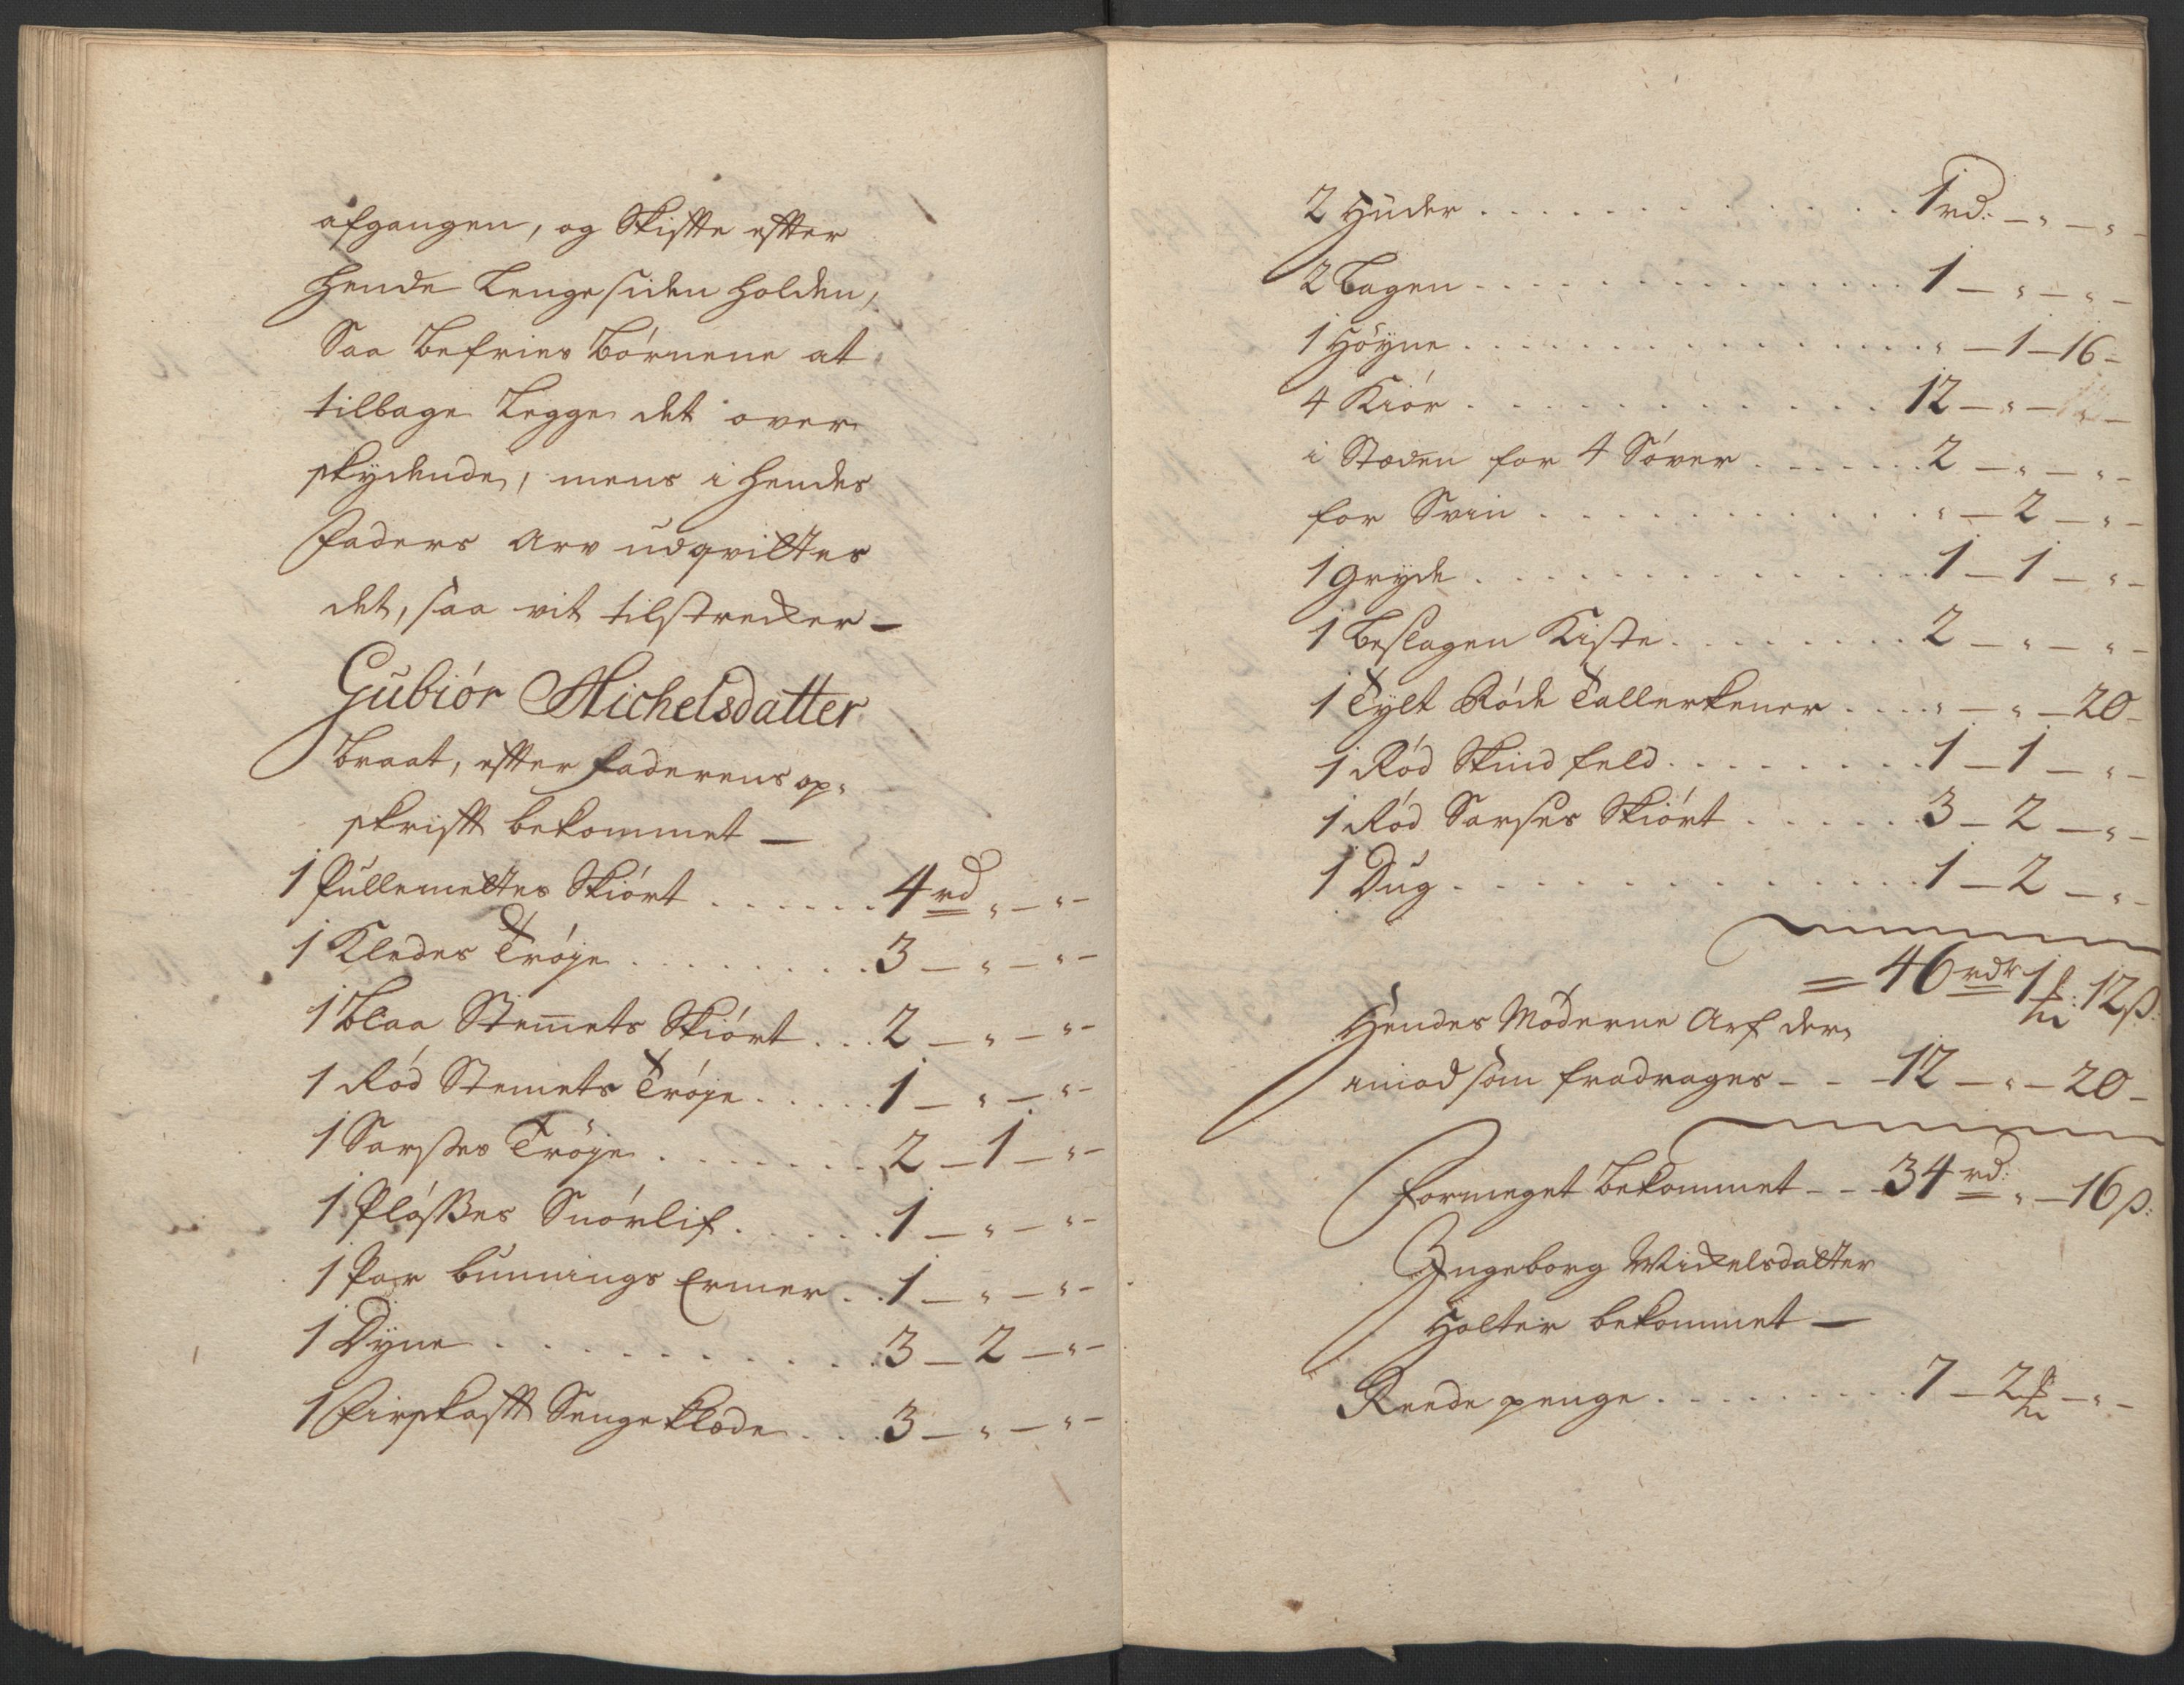 afgangen, og Skifte effter
hende Lenge siden holden,
Saa befries Börnene at
tilbage Legge det over
skydende, mens i hendes
Faders Arv udqvittes
det, saa vit tilstrecker —
Gubiör Michelsdatter
Braat, effter Faderens op,
skrifft bekommet —
1 Pullemeltes Skiört . . . . . . 4 rd „ — „ —
1 Kledes Tröje . . . . . . . . 3 — „ — „ —
1 blaa Stemets Skiört . . . 2 — „ — „ —
1 Röd Stemets Tröje . . . . . 1 — „ — „ —
1 Sarsses Tröje . . . . . . . 2 — 1 — „ —
1 Plösses Snörlif . . . . . . 1 — „ — „ —
1 Par bunnings Ermer . . 1 — „ — „ —
1 Dyne . . . . . . . . . . . 3 — 2 — „ —
1 Firskafft Sengeklæde . . . 3 — „ — „ —
2 Huder . . . . . . . . . . . . . 1 rd. — „ — „ —
2 Lagen . . . . . . . . . . . . . 1 — „ — „ —
1 Höyne . . . . . . . . . . . . . „ — 1 — 16 —
4 Kiör . . . . . . . . . . . . 12 — „ — „ —
i Steden for 4 Söver . . . . . . 2 — „ — „ —
for Svin . . . . . . . . . . . . „ — 2 — „ —
1 gryde . . . . . . . . . . . . . 1 — 1 — „ —
1 Beslagen Kiste . . . . . . . . 2 — „ — „ —
1 Tylt Röde Tallerkener . . . . „ — „ — 20 —
1 Röd Skind feld . . . . . . . . 1 — 1 — „ —
1 Röd Sarses Skiört . . . . . . 3 — 2 — „ —
1 Dug . . . . . . . . . . . . . 1 — 2 — „ —
= 46 rdr 1 12 ß:
Hendes Möderne Arf der,
imod som fradrages - - - 12 — „ — 20 —
Formeget bekommet - - - 34 rd: „ — 16 ß:
Ingeborg Mickelsdatter
Holter bekommet —
Reede penge . . . . . . . . . 7 — 2 — „ —